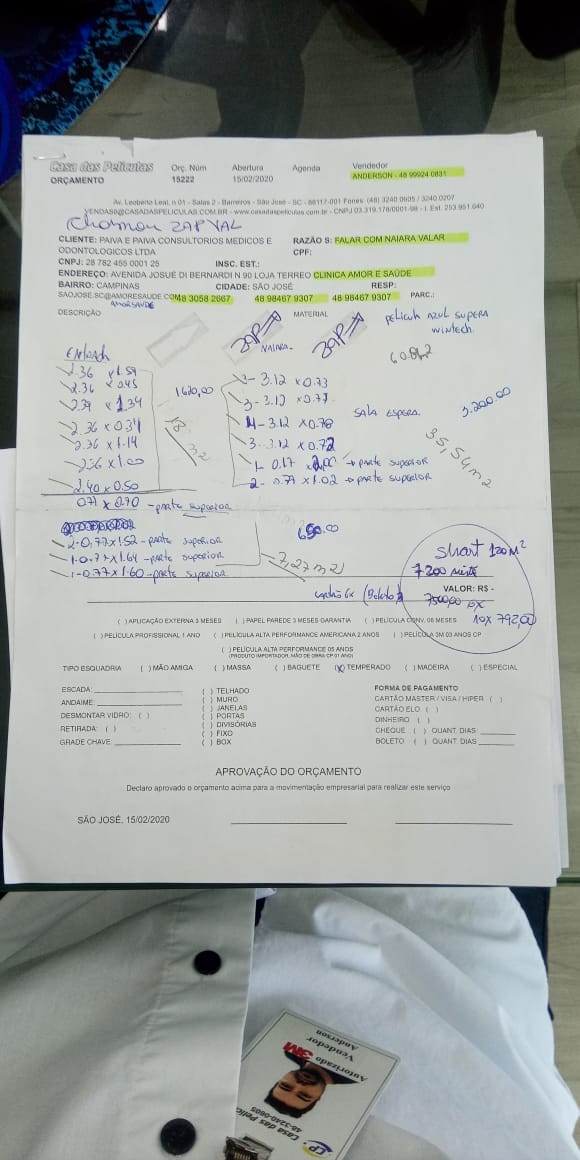 Casa das Películas
Orç. Núm
Abertura
Agenda
Vendedor
ORÇAMENTO
15222
15/02/2020
ANDERSON - 48 99924 0831
Av. Leoberto Leal, n 01 - Salas 2 - Barreiros - São José - SC - 88117-001 Fones (48) 3240.0605 / 3240.0207
VENDAS0@CASADASPELICULAS.COM.BR - www.casadaspeliculas.com.br - CNPJ 03.319.178/0001-98 - I. Est. 253.951.640
ZAP VAL
CLIENTE: PAIVA E PAIVA CONSULTORIOS MEDICOS E
RAZÃO S: FALAR COM NAIARA VALAR
ODONTOLOGICOS LTDA
CPF:
CNPJ: 28 782 455 0001 25
INSC. EST.:
ENDEREÇO: AVENIDA JOSUÉ DI BERNARDI N 90 LOJA TERREO CLINICA AMOR E SAÚDE
BAIRRO: CAMPINAS
CIDADE: SÃO JOSÉ
RESP:
SAOJOSE.SC@AMORESAUDE.COM
48 3058 2667
48 98467 9307
48 98467 9307
PARC.:
AMORSAUDE
DESCRIÇÃO
MATERIAL
Pelicula AZUL SUPERA
wintech.
ZAP
NAIARA
ZAP
2.36 x 1.59
2.36 x 0.45
2.39 x 1.34
2.36 x 0.34
2.36 x 1.14
2.36 x 1.00
2.40 x 0.50
0.71 x 0.70 - parte superior
1.620,00
18 m2
3.12 x 0.73
3 - 3.12 x 0.77
4 - 3.12 x 0.78
3 - 3.12 x 0.72
1 - 0.17 x 2.00 → parte superior
2 - 0.77 x 1.02 → parte superior
SALA ESPERA.
3.200.00
35,54m2
2-0,77x1.52 - parte superior
1-0.77x1.64 - parte superior
1-0.77x1.60 - parte superior
650.00
7,27m2
120 M²
7200
VALOR: R$ -
10x 792,00
6x (Boleto)
( ) APLICAÇÃO EXTERNA 3 MESES ( ) PAPEL PAREDE 3 MESES GARANTIA ( ) PELÍCULA CONV. 06 MESES
( ) PELÍCULA PROFISSIONAL 1 ANO ( ) PELÍCULA ALTA PERFORMANCE AMERICANA 2 ANOS ( ) PELÍCULA 3M 03 ANOS CP
( ) PELÍCULA ALTA PERFORMANCE 05 ANOS
(PRODUTO IMPORTADOR, MÃO DE OBRA CP 01 ANO)
TIPO ESQUADRIA ( ) MÃO AMIGA ( ) MASSA ( ) BAGUETE (X) TEMPERADO ( ) MADEIRA ( ) ESPECIAL
ESCADA:
ANDAIME:
DESMONTAR VIDRO: ( )
RETIRADA: ( )
GRADE CHAVE:
( ) TELHADO
( ) MURO
( ) JANELAS
( ) PORTAS
( ) DIVISÓRIAS
( ) FIXO
( ) BOX
FORMA DE PAGAMENTO
CARTÃO MASTER / VISA / HIPER ( )
CARTÃO ELO ( )
DINHEIRO ( )
CHEQUE ( ) QUANT. DIAS:
BOLETO ( ) QUANT. DIAS
APROVAÇÃO DO ORÇAMENTO
Declaro aprovado o orçamento acima para a movimentação empresarial para realizar este serviço
SÃO JOSÉ, 15/02/2020
Casa das Pelíc
48-3240-0605
Autorizado 3M
Vendedor
Anderson